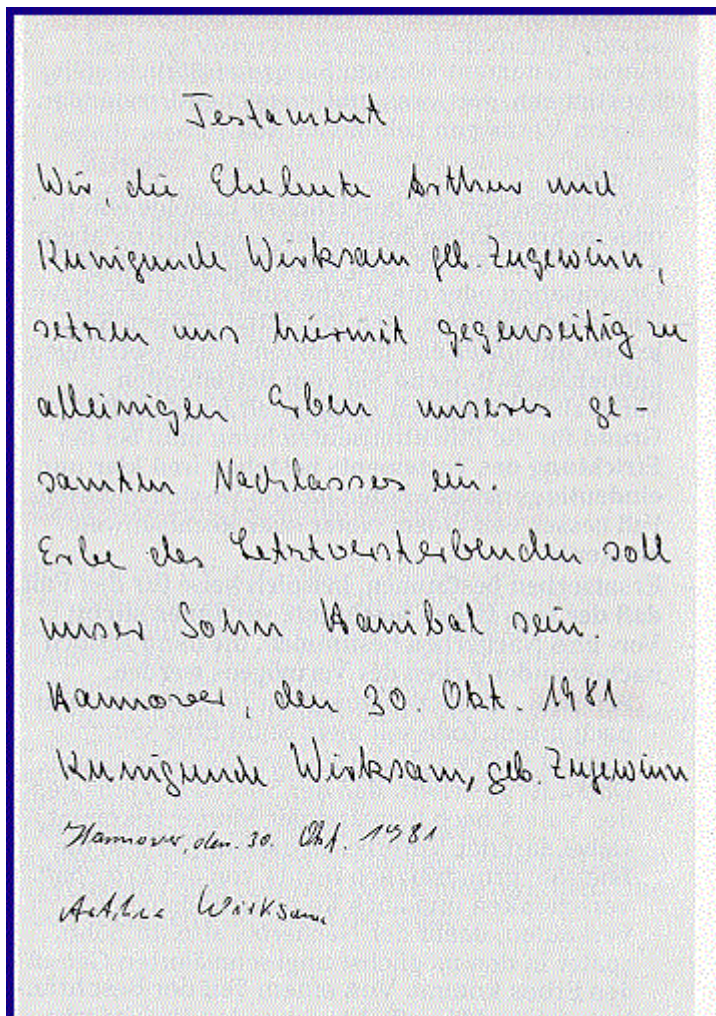 Testament
Wir, die Eheleute Arthur und
Kunigunde Wirksam geb. Zugewinn,
setzen uns hiermit gegenseitig zu
alleinigen Erben unseres ge-
samten Nachlasses ein.
Erbe des Letztversterbenden soll
unser Sohn Hanibal sein.
Hannover, den 30. Okt. 1981
Kunigunde Wirksam, geb. Zugewinn
Hannover, den 30. Okt. 1981
Arthur Wirksam